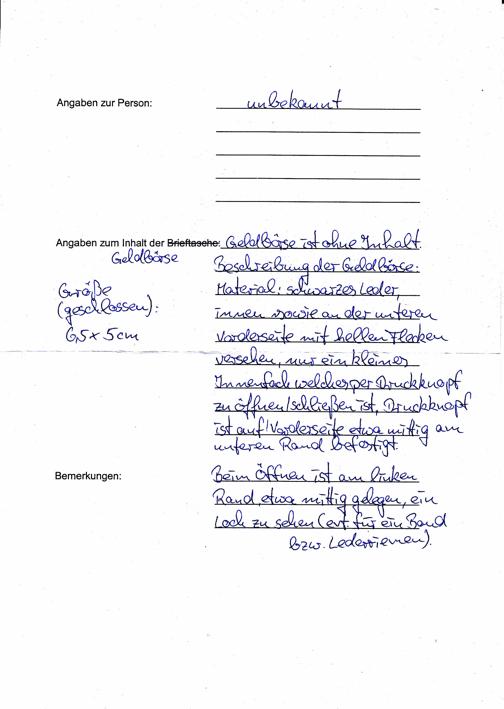 Angaben zur Person: unbekannt
Angaben zum Inhalt der Brieftasche: Geldbörse ist ohne Inhalt.
Geldbörse
Größe
(geschlossen):
6,5 x 5cm
Beschreibung der Geldbörse:
Material: schwarzes Leder,
innen sowie an der unteren
Vorderseite mit hellen Flecken
versehen, nur ein kleines
Innenfach welches per Druckknopf
zu öffnen/schließen ist, Druckknopf
ist auf Vorderseite etwa mittig am
unteren Rand befestigt.
Bemerkungen: Beim Öffnen ist am linken
Rand, etwa mittig gelegen, ein
Loch zu sehen (evt. für ein Band
bzw. Lederriemen).